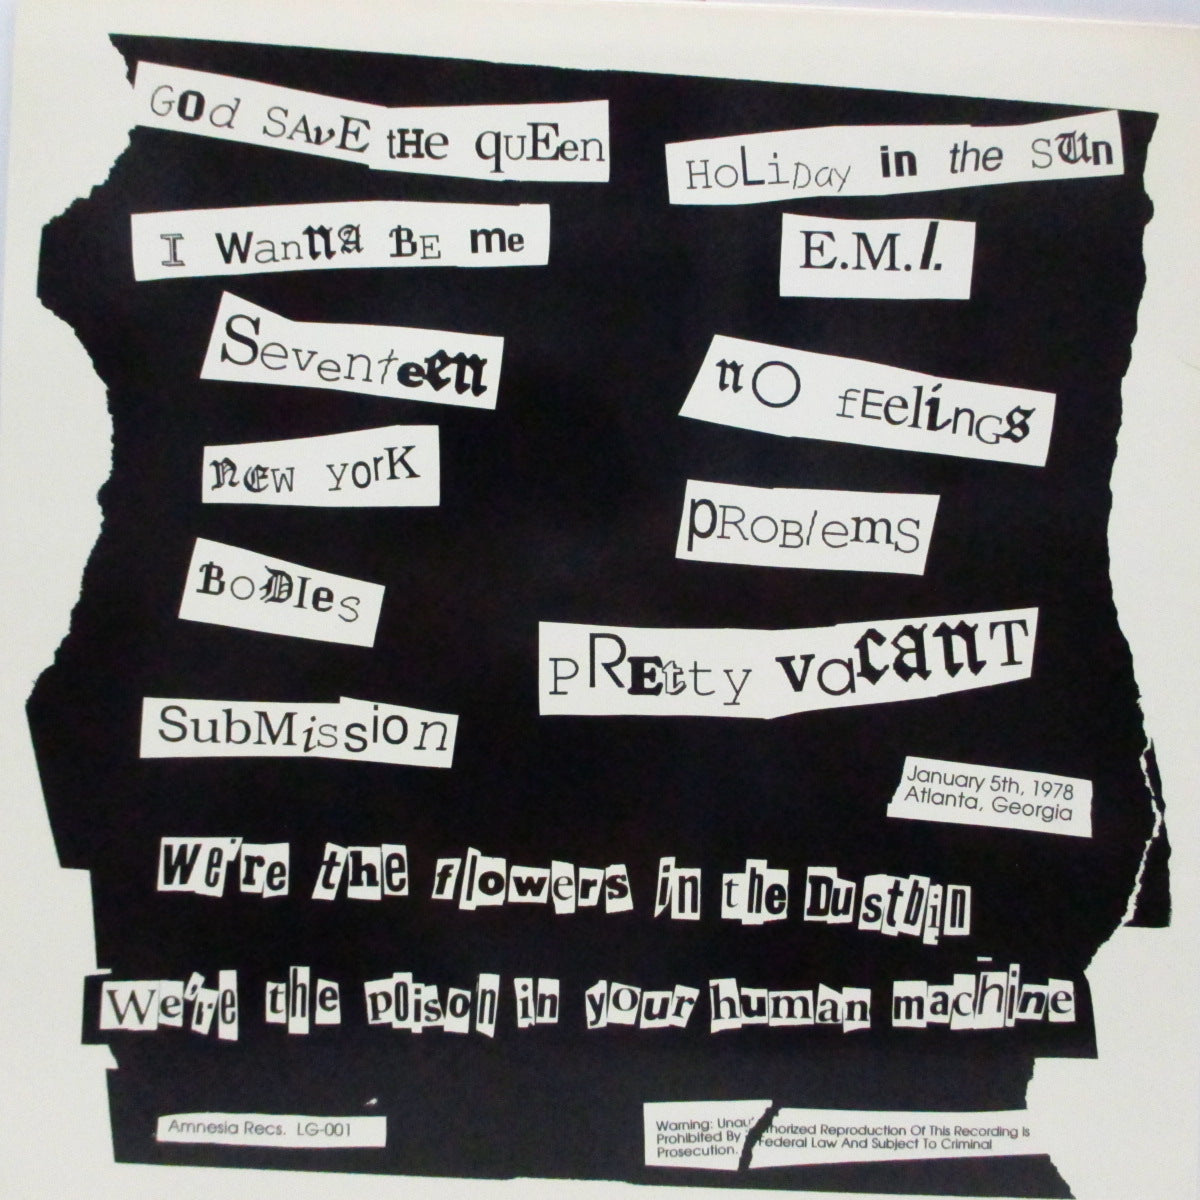 GOd SAvE tHe quEen
I WannA BE me
Seventeen
nEW yorK
BoDIes
SubMission
HoLiDay in the SUn
E.M.I.
nO fEelinGs
pROBlemS
pREtty vacanT
January 5th, 1978
Atlanta, Georgia
We're the flowers in the Dustbin
We're the poison in your human machine
Amnesia Recs. LG-001
Warning: Unauthorized Reproduction Of This Recording Is
Prohibited By Federal Law And Subject To Criminal
Prosecution.